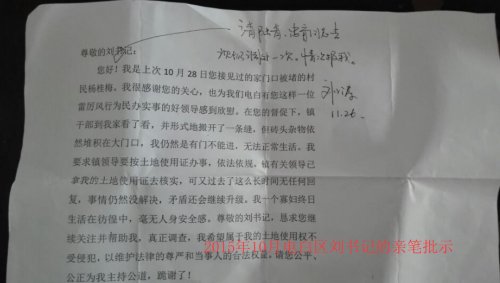 尊敬的刘书记：
您好！我是上次 10 月 28 日您接见过的家门口被堵的村
民杨桂梅，我很感谢您的关心，也为我们电白有您这样一位
雷厉风行为民办实事的好领导感到欣慰。在您的督促下，镇
干部到我家看了看，并形式地搬开了一条缝，但砖头杂物依
然堆积在大门口，我仍然是有门不能进，无法正常生活。我
要求镇领导要按土地使用证办事，依法依规。镇有关领导已
拿我的土地使用证去核实，可又过去了这么长时间无任何回
复，事情仍然没解决，矛盾还会继续升级。我一个寡妇终日
生活在彷徨中，毫无人身安全感。尊敬的刘书记，恳求您继
续关注并帮助我，真正调查，我希望属于我的土地使用权不
受侵犯，以维护法律的尊严和当事人的合法权益，请您公平、
公正为我主持公道，跪谢了！
11.26
2015年10月电白区刘书记的亲笔批示